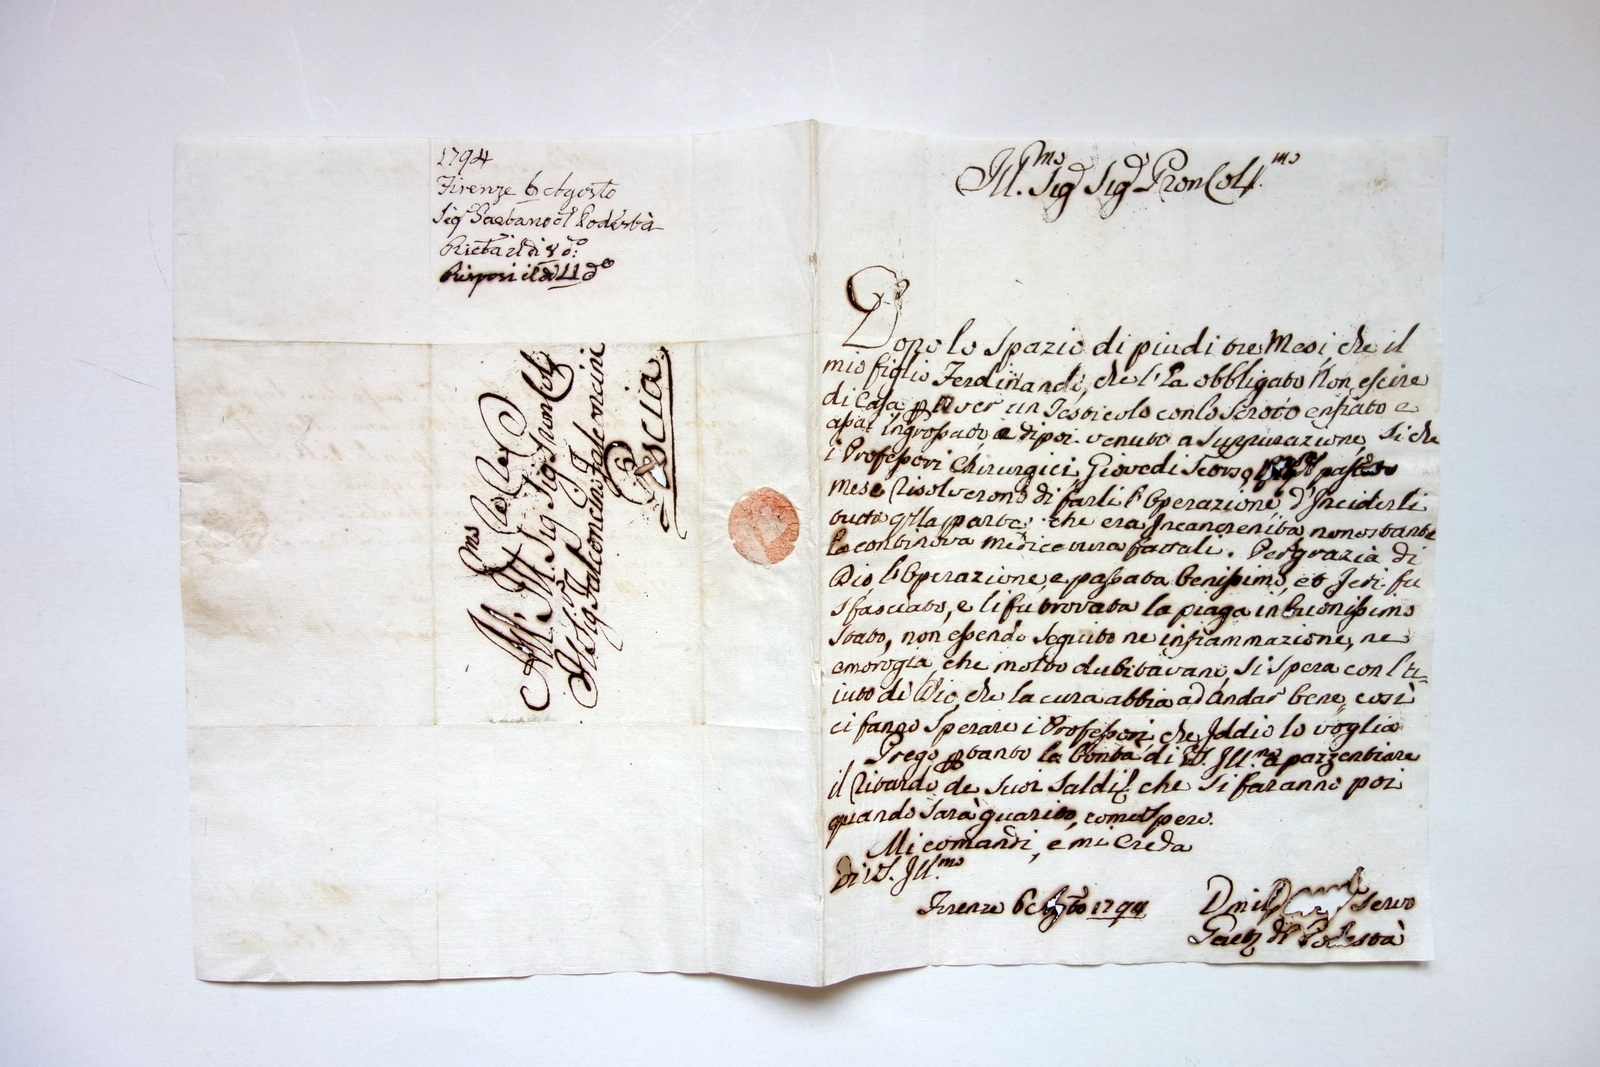 1794
Firenze 6 Agosto
Sig.r Gaetano del Podestà
Ric.ta il dì 8 d.o
Risposi il dì 11 d.o
All' Ill.mo Sig. Sig. Pron Col.
Il Sig. Falconcino Falconcini
Pescia
Ill.mo Sig.e Sig.e Pron Col.mo
Dopo lo spazio di piu di tre Mesi, che il
mio figlio Ferdinando, che l'ha obbligato non escire
di Casa p aver un Testicolo con lo Scroto enfiato e
assai ingrossato e di poi venuto a Suppurazione, Si che
i Professori Chirurgici, Giovedi Scorso passato
mese risolverono di farli l'Operazione, d'Inciderli
tutta qlla parte, che era Incancrenita nonostante
la continova medicatura fattali. Per grazia di
Dio l'Operazione, e passata benissimo, et Jeri fu
sfasciato, e li fu trovata la piaga in buonissimo
stato, non essendo seguito ne infiammazione, ne
emorogia, che molto dubitavano, si spera con l'a-
iuto di Dio, che la cura abbia ad andar bene, così
ci fanno sperare i Professori, che Iddio lo voglia
Prego p tanto la bontà di VS. Ill.ma a pazzentare
il ritardo de suoi saldi, che si faranno poi
quando sarà guarito, come spero.
Mi comandi, e mi creda
Di VS. Ill.mo
Firenze 6 Agosto 1794
Servo
Gaet. del Podestà